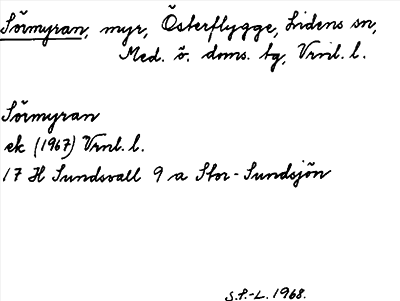 Sörmyran, myr, Österflygge, Lidens sn,
Med. ö. doms. tg, Vrnl. l.
Sörmyran
ek (1967) Vrnl. l.
17 H Sundsvall 9 a Stor-Sundsjön
S.F.-L. 1968.